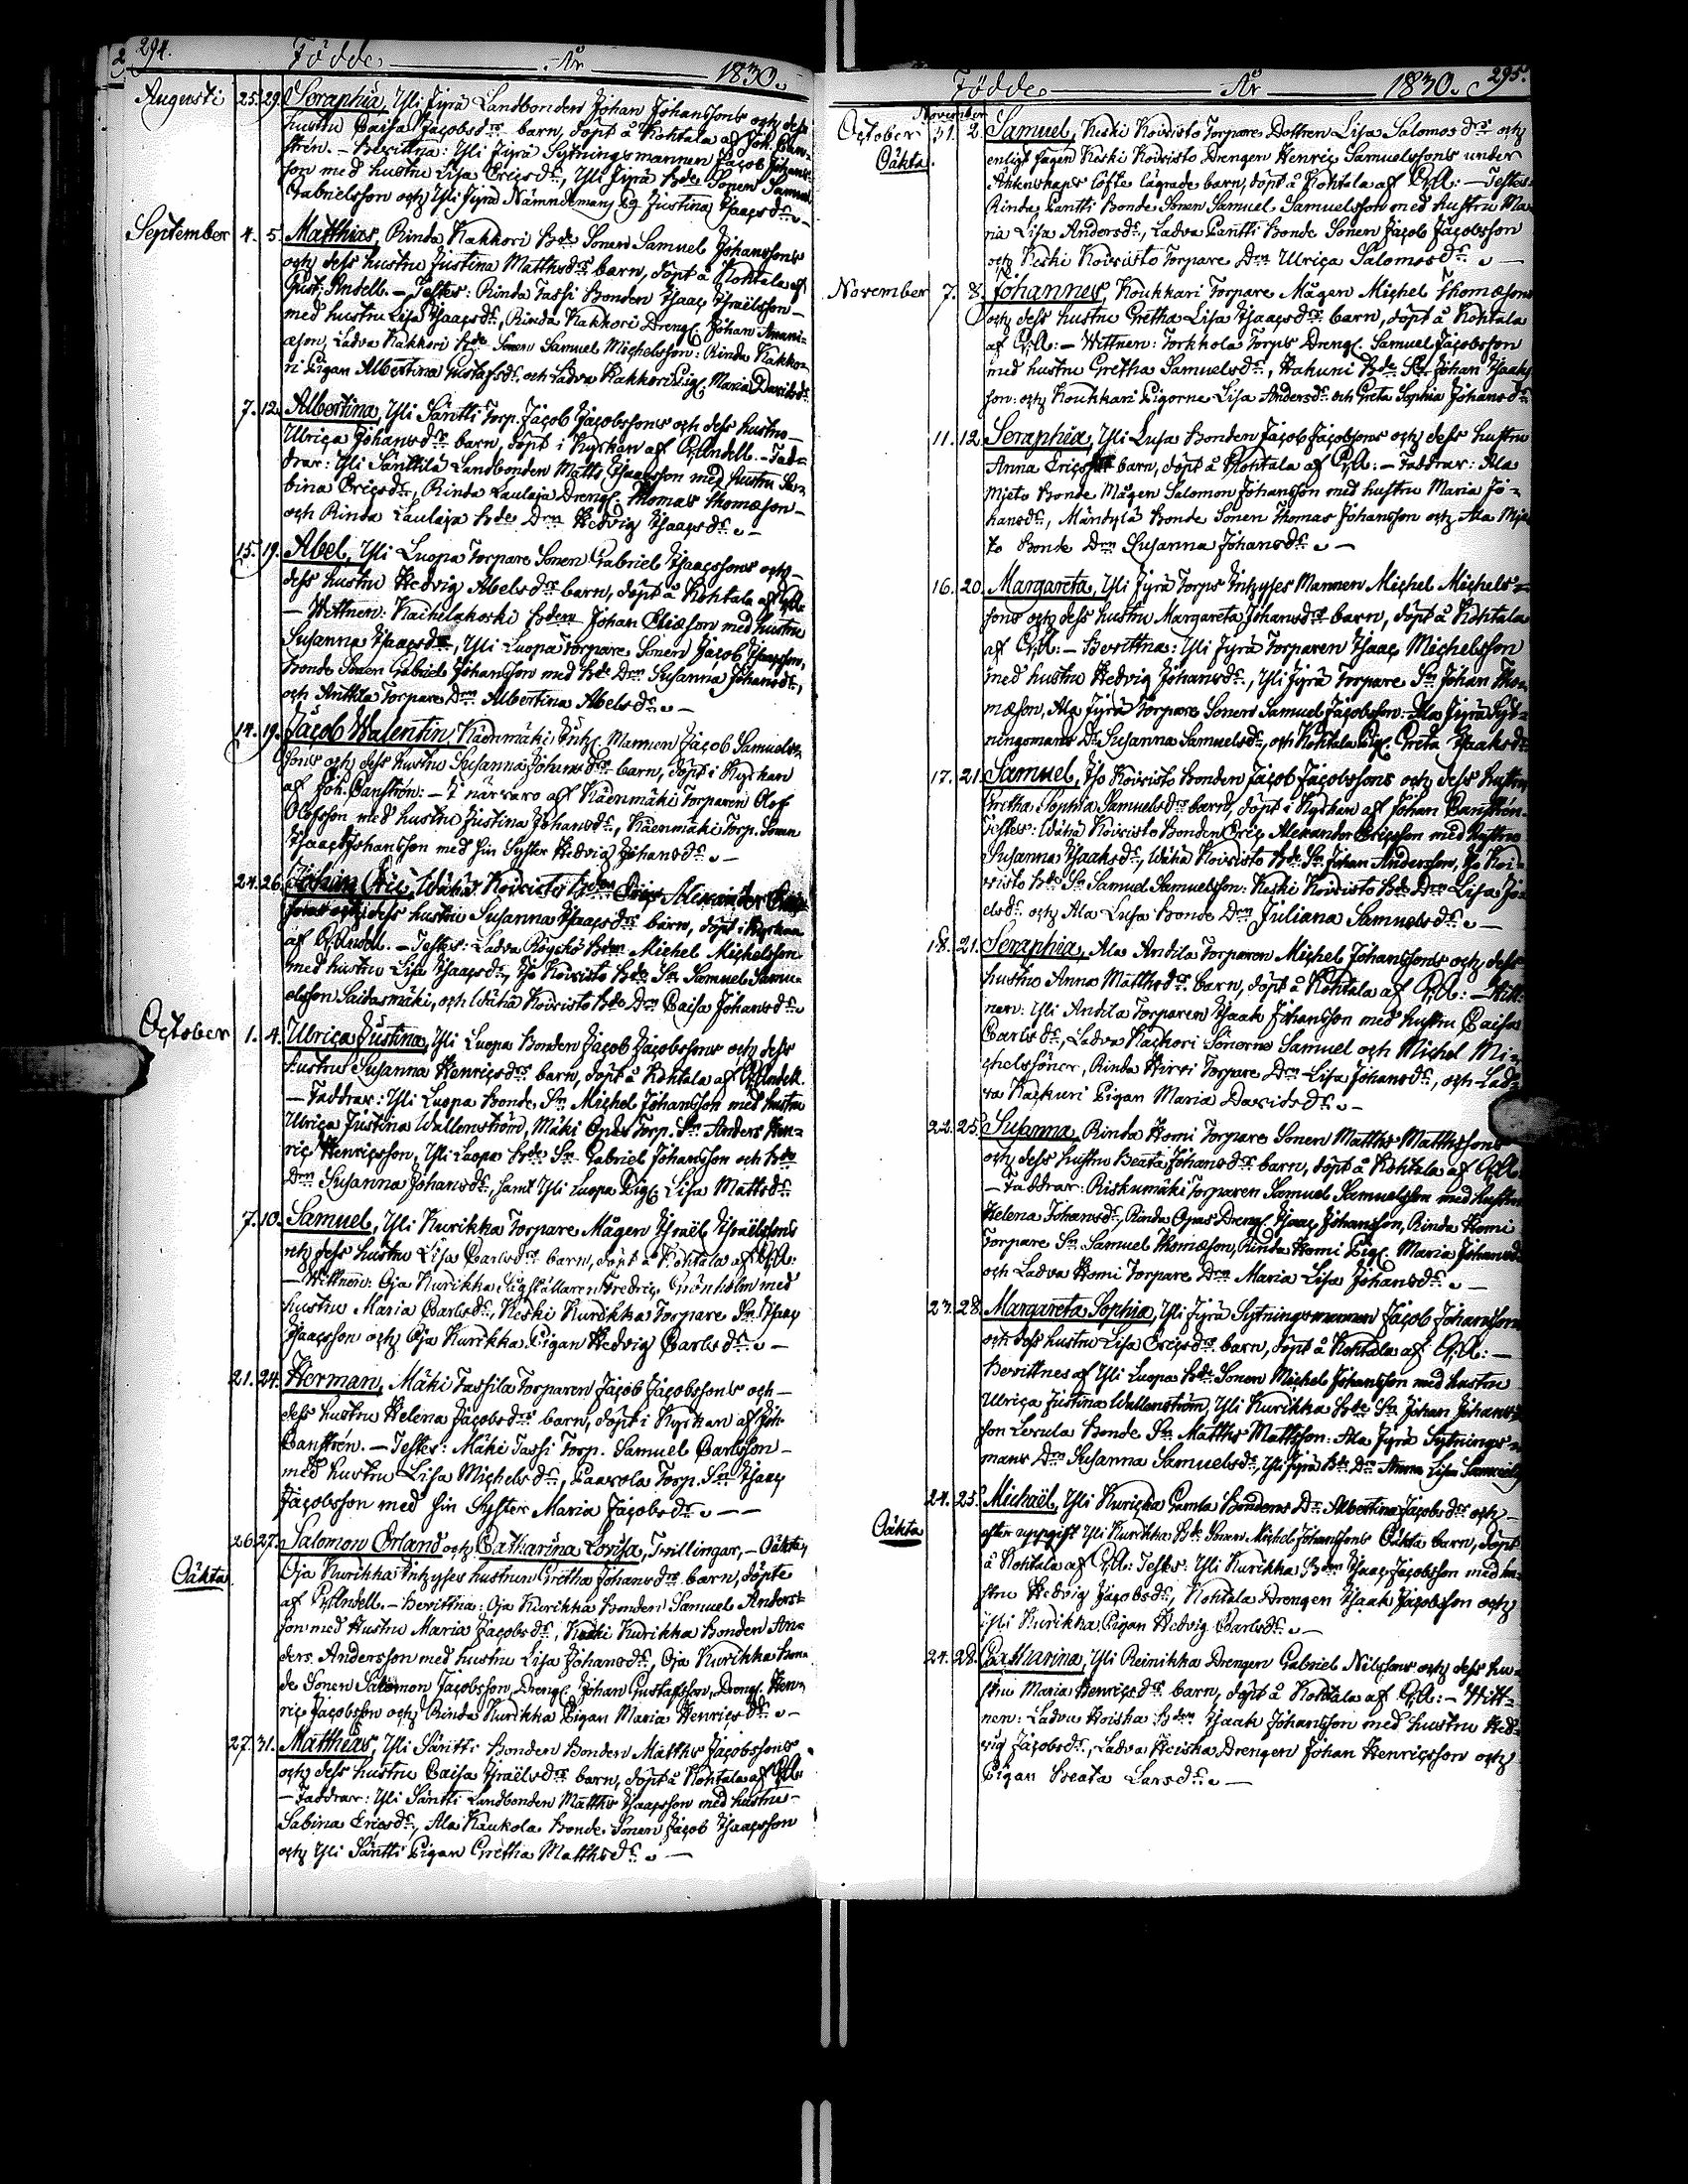 294.
Födde År 1830.
Augusti 25. 29. Seraphia, Yli Jyrä Landbonden Johan Johanssons och dess
hustru Caisa Jacobsdrs barn, döpt å Kohtala af Joh. Can-
strén. – Bevittna: Yli Jyrä Sytningsmannen Jacob Johans-
son med hustru Lisa Ericsdr, Yli Jyrä Bde Sonen Samuel
Gabrielsson och Yli Jyrä Nämndemans Justina Isaacsdr
September 4. 5. Matthias, Rinda Kakkori Bde Sonen Samuel Johanssons
och dess hustru Justina Matthsdrs barn, döpt å Kohtala af
Gust. Andell. – Testes: Rinda Tassi Bonden Isaac Israëlsson –
med hustru Lisa Isaacsdr, Rinda Kakkori Dreng. Johan Anani-
æson, Ladva Kakkori Bde Sonen Samuel Michelsson: Rinda Kakko-
ri Pigan Albertina Gustafsdr och Ladva Kakkori Pig. Maria Davidsdr
7. 12. Albertina, Yli Säntti Torp. Jacob Jacobssons och dess hustru –
Ulrica Johansdrs barn, döpt i Kyrkan af G. Andell. – Fad-
drar: Yli Sänttilä Landbonden Matts Isaacsson med hustru Sa-
bina Ericsdr, Rinda Laulaja Dreng. Thomas Thomæson –
och Rinda Laulaja Bde Drn Hedvig Isaacsdr
15. 19. Abel, Yli Luopa Torpare Sonen Gabriel Isaacssons och –
dess hustru Hedvig Abelsdrs barn, döpt å Kohtala af G.A.
– Wittnen: Kaihelakoski Bden Johan Eliæson med hustru
Susanna Isaacsdr, Yli Luopa Torpare Sonen Jacob Isaacsson,
Bonde Sonen Gabriel Johansson med Bde Drn Susanna Johansdr,
och Anttila Torpare Drn Albertina Abelsdr
14. 19. Jacob Walentin, Käenmäki Inh. Mannen Jacob Samuels-
sons och dess hustru Susanna Johansdrs barn, döpt i Kyrkan
af Joh. Canstrén: – I närvaro af Käenmäki Torparen Olof
Olofsson med hustru Justina Johansdr, Käenmäki Torp. Sonen
Isaac Johansson med sin Syster Hedvig Johansdr
24. 26. Johan Eric, Wähä Koivisto Bden Eric Alexander Erics-
sons och dess hustru Susanna Isaacsdrs barn, döpt i Kyrkan
af G. Andell. – Testes: Ladva Röyhkö Bden Michel Michelsson
med hustru Lisa Isaacsdr, Iso Koivisto Bde Sn Samuel Samu-
elsson Saidasmäki, och Wähä Koivisto Bde Drn Caisa Johansdr
October 1. 4. Ulrica Justina, Yli Luopa Bonden Jacob Jacobssons och dess
hustru Susanna Henricsdrs barn, döpt å Kohtala af G. Andell.
– Faddrar: Yli Luopa Bonde Sn Michel Johansson med hustru
Ulrica Justina Wallenström, Mäki Opas Torp. Sn Anders Hen-
ric Henricsson, Yli Luopa Bde Sn Gabriel Johansson och Bde
Drn Susanna Johansdr, samt Yli Luopa Pig. Lisa Mattsdr
7. 10. Samuel, Yli Kurikka Torpare Mågen Israël Israëlssons
och dess hustru Lisa Carlsdrs barn, döpt å Kohtala af G.A.
– Wittnen: Oja Kurikka Lägstållaren Fredric Grönholm med
hustru Maria Carlsdr, Keski Kurikka Torpare Sn Isaac
Isaacsson och Oja Kurikka Pigan Hedvig Carlsdr
21. 24. Herman, Mäki Tassila Torparen Jacob Jacobssons och –
dess hustru Helena Jacobsdrs barn, döpt i Kyrkan af Joh.
Canstrén. – Testes: Mäki Tassi Torp. Samuel Carlsson –
med hustru Lisa Michelsdr, Paavola Torp. Sn Isaac
Jacobsson med sin Syster Maria Jacobsdr
26. 27. Salomon Orland och Catharina Lovisa, Tvillingar, – Oäkta,
Oäkta Oja Kurikka Inhyses hustrun Gretha Johansdrs barn, döpte
af G. Andell. – Bevittna: Oja Kurikka Bonden Samuel Anders-
son med Hustru Maria Jacobsdr, Keski Kurikka Bonden An-
ders Andersson med hustru Lisa Johansdr, Oja Kurikka Bon-
de Sonen Salomon Jacobsson, Dreng. Johan Gustafsson, Dreng. Hen-
ric Jacobsson och Rinda Kurikka Pigan Maria Henricsdr
27. 31. Matthias, Yli Säntti Bonden Bonden Matths Jacobssons
och dess hustru Caisa Israëlsdrs barn, döpt å Kohtala af G.A.
– Faddrar: Yli Säntti Landbonden Matths Isaacsson med hustru –
Sabina Ericsdr, Ala Kaukola Bonde Sonen Jacob Isaacsson
och Yli Säntti Pigan Gretha Matthsdr
295.
Födde År 1830.
November
October 31. 2. Samuel, Keski Koivisto Torpare Dottren Lisa Salomosdrs och
Oäkta. enligt sägen Keski Koivisto Drengen Henric Samuelssons under
Äktenskaps löfte lägrade barn, döpt å Kohtala af G.A: – Testes:
Rinda Pantti Bonde Sonen Samuel Samuelsson med hustru Ma-
ria Lisa Andersdr, Ladva Pantti Bonde Sonen Jacob Jacobsson
och Keski Koivisto Torpare Drn Ulrica Salomosdr
November 7. 8. Johannes, Koukkari Torpare Mågen Michel Thomæsons
och dess hustru Gretha Lisa Isaacsdrs barn, döpt å Kohtala
af G.A: – Wittnen: Torkhola Torps Dreng. Samuel Jacobsson
med hustru Gretha Samuelsdr, Hakuni Bde Sn Johan Isaacs-
son: och Koukkari Pigorne Lisa Andersdr och Greta Sophia Johansdr
11. 12. Seraphia, Yli Lusa Bonden Jacob Jacobssons och dess hustru
Anna Ericsdrs barn, döpt å Kohtala af G.A: – Faddrar: Ala
Mieto Bonde Mågen Salomon Johansson med hustru Maria Jo-
hansdr, Mändylä Bonde Sonen Thomas Johansson och Ala Mie-
to Bonde Drn Susanna Johansdr
16. 20. Margareta, Yli Jyrä Torps Inhyses Mannen Michel Michels-
sons och dess hustru Margareta Johansdrs barn, döpt å Kohtala
af G.A: – Bevittna: Yli Jyrä Torparen Isaac Michelsson
med hustru Hedvig Johansdr, Yli Jyrä Torpare Sn Johan Tho-
mæson, Ala Jyrä Torpare Sonen Samuel Jacobsson: Ala Jyrä Syt-
ningsmans Dr Susanna Samuelsdr, och Kohtala Pig. Greta Isaaksdr
17. 21. Samuel, Iso Koivisto Bonden Jacob Jacobssons och dess hustru
Gretha Sophia Samuelsdrs barn, döpt i Kyrkan af Johan Canstrén.
Testes: Wähä Koivisto Bonden Eric Alexander Ericsson med hustru
Susanna Isaaksdr, Wähä Koivisto Bde Sn Johan Andersson, Iso Koi-
visto Bde Sn Samuel Samuelsson: Keski Koivisto Bde Drn Lisa Jo-
elsdr och Ala Lusa Bonde Drn Juliana Samuelsdr
18. 21. Seraphia, Ala Andila Torparen Michel Johanssons och dess
hustru Anna Matthsdrs barn, döpt å Kohtala af G.A: – Witt-
nen: Yli Andila Torparen Isaak Johansson med hustru Caisa
Carlsdr, Ladva Kackori Sönerne Samuel och Michel Mi-
chelssöner, Rinda Hirvi Torpare Drn Lisa Johansdr, och Lad-
va Kackuri Pigan Maria Davidsdr
22. 25. Susanna, Rinda Homi Torpare Sonen Matths Matthssons
och dess hustru Beata Johansdrs barn, döpt å Kohtala af G.A.
– Faddrar: Riskumäki Torparen Samuel Samuelsson med hustru
Helena Johansdr, Rinda Opas Dreng. Isaac Johansson, Rinda Homi
Torpare Sn Samuel Thomæson, Rinda Homi Pig. Maria Johansdr
och Ladva Homi Torpare Drn Maria Lisa Johansdr
23. 28. Margareta Sophia, Yli Jyrä Sytningsmannen Jacob Johanssons
och dess hustru Lisa Ericsdrs barn, döpt å Kohtala af G.A: –
Bevittnes af Yli Luopa Bde Sonen Michel Johansson med hustru
Ulrica Justina Wallenström, Yli Kurikka Bde Sn Johan Johans-
son Levula Bonde Sn Matths Mattsson: Ala Jyrä Sytnings-
mans Drn Susanna Samuelsdr, Yli Jyrä Bde Drn Anna Lisa Samuelsdr
24. 25. Michaël, Yli Kuricka Gamla Bondens Dr Albertina Jacobsdrs och –
Oäkta efter uppgift Yli Kurikka Bde Sonen Michel Johanssons Oäkta barn, döpt
å Kohtala af G.A: Testes: Yli Kurikka Bden Isaac Jacobsson med hu-
stru Hedvig Jacobsdr, Kohtala Drengen Isaak Jacobsson och
Yli Kurikka Pigan Hedvig Carlsdr
24. 28. Catharina, Yli Reinikka Drengen Gabriel Nilssons och dess hu-
stru Maria Henricsdrs barn, döpt å Kohtala af G.A: – Witt-
nen: Ladva Hoiska Bden Isaak Johansson med hustru Hed-
vig Jacobsdr, Ladva Heiska Drengen Johan Henricsson och
Pigan Beata Larsdr